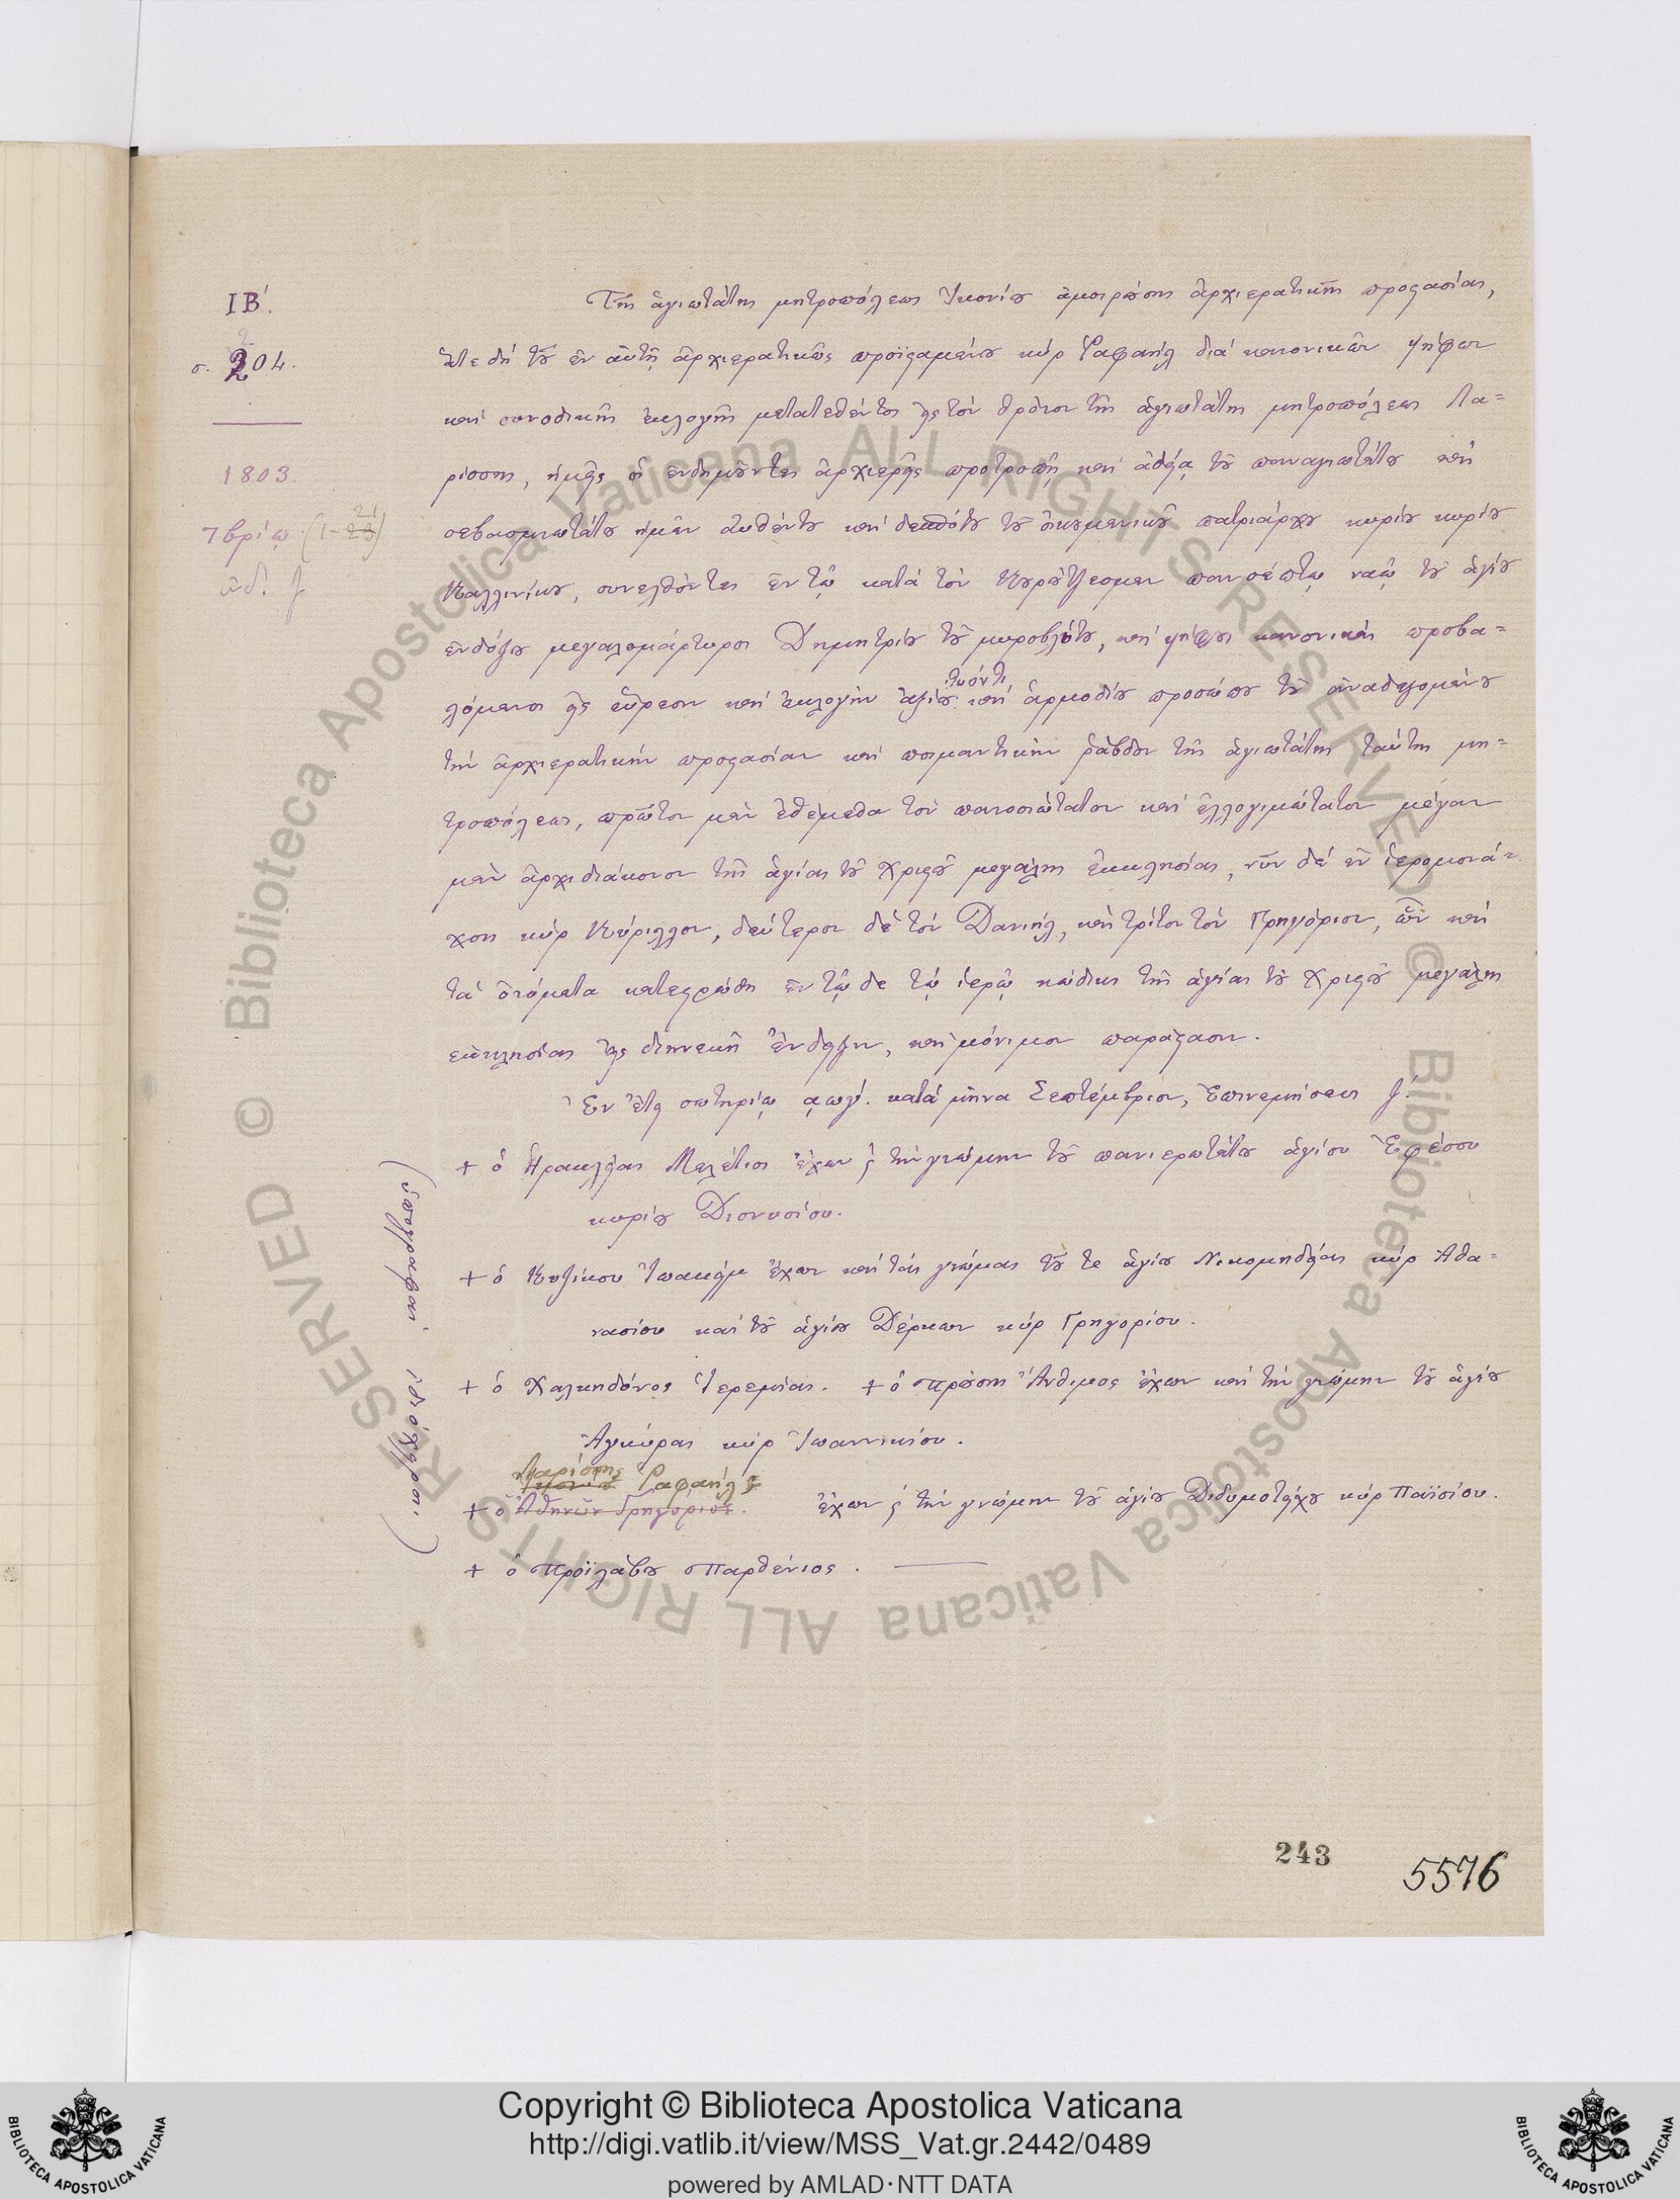 ΙΒ΄.
σ. 204.
1803.
7βρίῳ (1-21)
ἰνδ. ζ
Τῆς ἁγιωτάτης μητροπόλεως Ἰκονίου ἀμοιρούσης ἀρχιερατικῆς προστασίας,
ἅτε δὴ τοῦ ἐν αὐτῇ ἀρχιερατικῶς προϊσταμένου κὺρ Ῥαφαὴλ διὰ κανονικῶν ψήφων
καὶ συνοδικῆς ἐκλογῆς μετατεθέντος εἰς τὸν θρόνον τῆς ἁγιωτάτης μητροπόλεως Λα=
ρίσσης, ἡμεῖς οἱ ἐνδημοῦντες ἀρχιερεῖς προτροπῇ καὶ ἀδείᾳ τοῦ παναγιωτάτου καὶ
σεβασμιωτάτου ἡμῶν αὐθέντου καὶ δεσπότου τοῦ οἰκουμενικοῦ πατριάρχου κυρίου κυρίου
Καλλινίκου, συνελθόντες ἐν τῷ κατὰ τὸν Κουρούτζεσμεν πανσέπτῳ ναῷ τοῦ ἁγίου
ἐνδόξου μεγαλομάρτυρος Δημητρίου τοῦ μυροβλύτου, καὶ ψήφους κανονικὰς προβα=
λόμενοι εἰς εὕρεσιν καὶ ἐκλογὴν ἀξίου καὶ ἁρμοδίου προσώπου τοῦ ἀναδεξομένου
τὴν ἀρχιερατικὴν προστασίαν καὶ ποιμαντικὴν ῥάβδον τῆς ἁγιωτάτης ταύτης μη=
τροπόλεως, πρῶτον μὲν ἐθέμεθα τὸν πανοσιώτατον καὶ ἐλλογιμώτατον μέγαν
μὲν ἀρχιδιάκονον τῆς ἁγίας τοῦ Χριστοῦ μεγάλης ἐκκλησίας, νῦν δὲ ἐν ἱερομονά=
χοις κὺρ Κύριλλον, δεύτερον δὲ τὸν Δανιήλ, καὶ τρίτον τὸν Γρηγόριον, ὧν καὶ
τὰ ὀνόματα κατεστρώθη ἐν τῷδε τῷ ἱερῷ κώδικι τῆς ἁγίας τοῦ Χριστοῦ μεγάλης
ἐκκλησίας εἰς διηνεκῆ ἔνδειξιν, καὶ μόνιμον παράστασιν.
Ἐν ἔτει σωτηρίῳ αωγ΄. κατὰ μῆνα Σεπτέμβριον, Ἐπινεμήσεως ζ΄.
+ ὁ Ἡρακλείας Μελέτιος ἔχων ϗ τὴν γνώμην τοῦ πανιερωτάτου ἁγίου Ἐφέσου
κυρίου Διονυσίου.
+ ὁ Κυζίκου Ἰωακεὶμ ἔχων καὶ τὰς γνώμας τοῦ τε ἁγίου Νικομηδείας κὺρ Ἀθα=
νασίου καὶ τοῦ ἁγίου Δέρκων κὺρ Γρηγορίου.
+ ὁ Χαλκηδόνος Ἱερεμίας. + ὁ Προύσης Ἄνθιμος ἔχων καὶ τὴν γνώμην τοῦ ἁγίου
Ἀγκύρας κὺρ Ἰωαννικίου.
Λαρίσσης Ῥαφαήλ
+ ὁ Ἀθηνῶν Γρηγόριος. ἔχων ϗ τὴν γνώμην τοῦ ἁγίου Διδυμοτείχου κὺρ Παϊσίου.
+ ὁ Προϊλάβου Παρθένιος.
(ὑπογραφαὶ ἰδιόχειροι.)
243
5576
© Biblioteca Apostolica Vaticana ALL RIGHTS RESERVED
© Biblioteca Apostolica Vaticana ALL RIGHTS RESERVED
Copyright © Biblioteca Apostolica Vaticana
http://digi.vatlib.it/view/MSS_Vat.gr.2442/0489
powered by AMLAD·NTT DATA
BIBLIOTECA APOSTOLICA VATICANA
BIBLIOTECA APOSTOLICA VATICANA